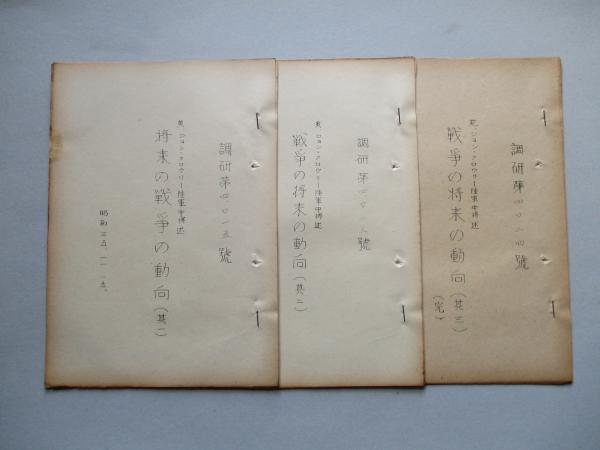 調研第四〇一五號
英 ジョン・クロウリー陸軍中将述
将来の戦爭の動向(其一)
昭和三五、一一、一五、
調研第四〇
號
英 ジョン・クロウリー陸軍中将述
戰爭の将来の動向(其二)
調研第四〇二四號
英 ジョン・クロウリー陸軍中将述
戰爭の将来の動向(其三)
(完)